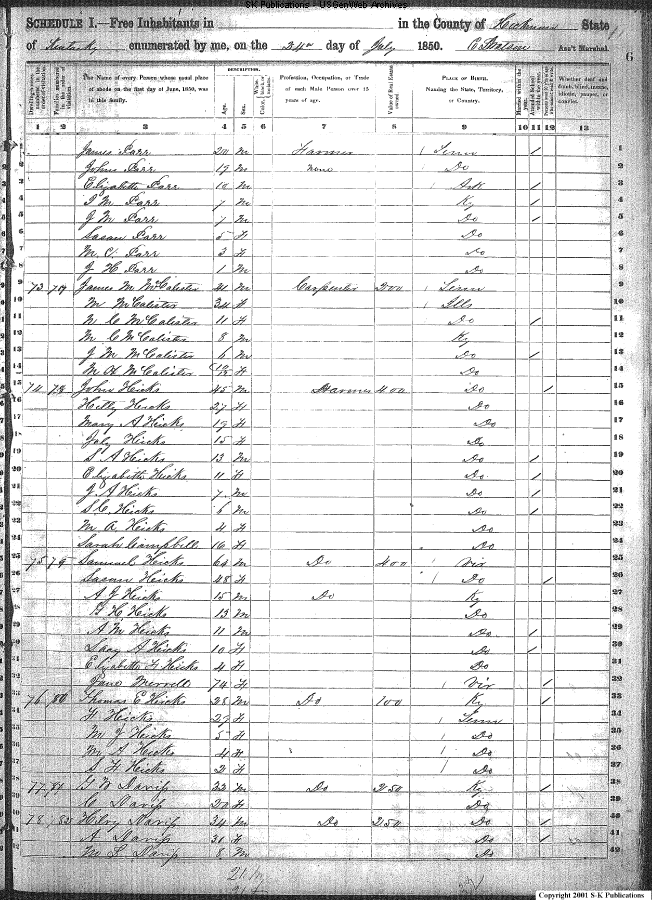 S-K Publications - USGenWeb Archives
SCHEDULE I.—Free Inhabitants in in the County of Hickman State
of Kentucky enumerated by me, on the 24th day of July 1850. Ass't Marshal.
6
DESCRIPTION.
Dwelling-houses numbered in the order of visitation.
Families numbered in the order of visitation.
The Name of every Person whose usual place of abode on the first day of June, 1850, was in this family.
Age.
Sex.
White, black, or mulatto.
Color,
Profession, Occupation, or Trade of each Male Person over 15 years of age.
Value of Real Estate owned
PLACE OF BIRTH. Naming the State, Territory, or Country.
Married within the year.
Attended School within the year.
Whether deaf and dumb, blind, insane, idiotic, pauper, or convict.
1 2 3 4 5 6 7 8 9 10 11 12 13
1 James Farr 20 M Farmer Tenn / 1
2 Johns Farr 17 M None Do 2
3 Elizabeth Farr 10 M Ark / 3
4 T M Farr 7 M Ky / 4
5 J M Farr 7 M Do / 5
6 Susan Farr 5 F Do 6
7 M C Farr 3 F Do 7
8 J H Farr 1 M Do 8
9 73 77 James M McCalister 41 M Carpenter 200 Tenn 9
10 M McCalister 34 F Ills 10
11 N C McCalister 11 F Do / 11
12 M C McCalister 8 M Ky 12
13 J M McCalister 6 M Do / 13
14 M A McCalister F Do 14
15 74 78 John Hicks 45 M Farmer 400 Do / 15
16 Hetty Hicks 27 F Do 16
17 Mary A Hicks 19 F Do 17
18 July Hicks 15 F Do 18
19 S A Hicks 13 M Do / 19
20 Elizabeth Hicks 11 F Do / 20
21 J A Hicks 7 M Do / 21
22 S C Hicks 6 M Do / 22
23 M A Hicks 4 F Do 23
24 Sarah Campbell 16 F Do 24
25 75 79 Samuel Hicks 64 M Do 400 Vir 25
26 Susan Hicks 48 F Do / 26
27 A J Hicks 15 M Do Ky 27
28 G H Hicks 13 M Do 28
29 A M Hicks 11 M Do / 29
30 Lucy A Hicks 10 F Do / 30
31 Elizabeth F Hicks 4 F Do 31
32 Jane Merrell 74 F Vir / 32
33 76 80 Thomas C Hicks 28 M Do 100 Ky / 33
34 F Hicks 27 F Tenn 34
35 M J Hicks 5 F Do 35
36 M A Hicks 4 F Do 36
37 S F Hicks 2 F Do 37
38 77 81 G W Davis 33 M Do 250 Ky / 38
39 C Davis 20 F Do 39
40 78 82 Hilry Davis 34 M Do 250 Do / 40
41 A Davis 31 F Do / 41
42 M L Davis 8 M Do 42
21 M
21 F
Copyright 2001 S-K Publications